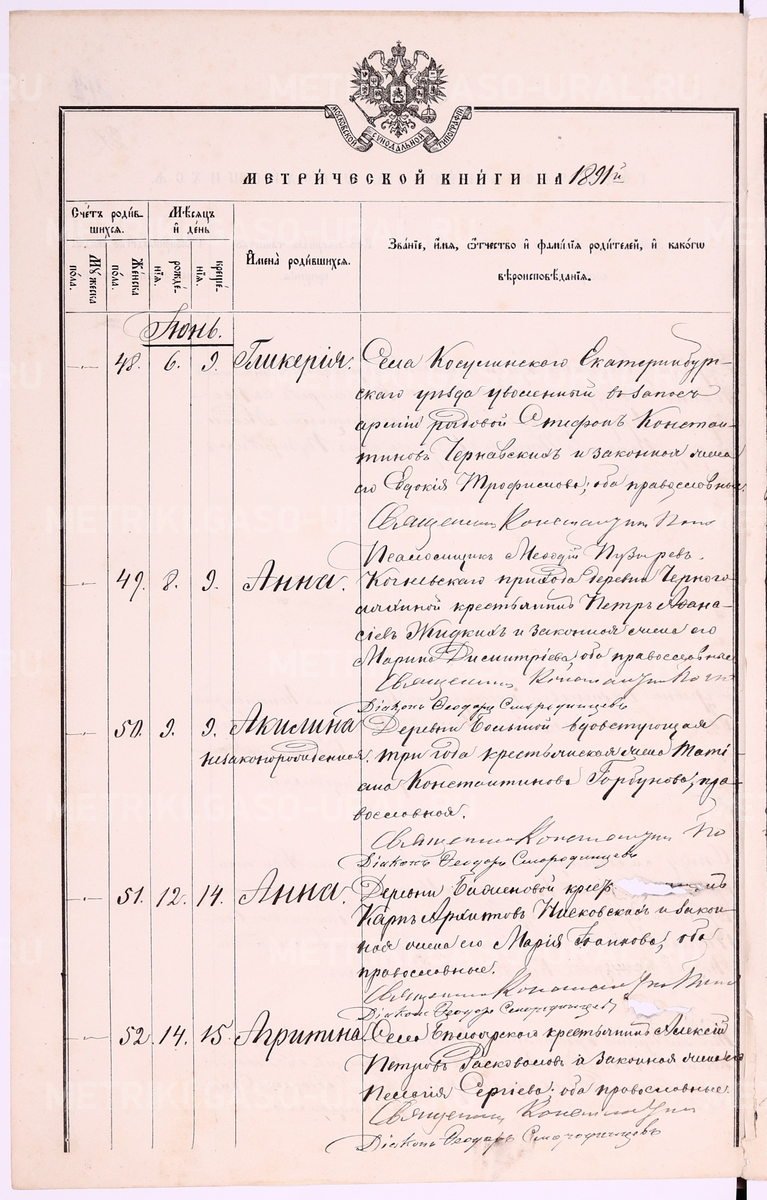 МОСКОВСКОЙ СѴНОДАЛЬНОЙ ТИПОГРАФІИ
МЕТРИ́ЧЕСКОЙ КНИ́ГИ НА 1891й
Сче́тъ роди́в-
шихся.
Мѣ́сяцъ
и҆ де́нь
И҆мена̀ роди́вшихся.
Зва́нїе, и҆́мя, ѻ҆́тчество и҆ фами́лїя роди́телей, и҆ како́гѡ
вѣроисповѣ́данїя.
Мꙋ́жеска
по́ла.
Же́нска
по́ла.
рожде́-
нїѧ.
креще́-
нїѧ.
Іюнь.
48. 6. 9. Гликерія.
Села Косулинскаго Екатеринбург-
скаго уѣзда уволенный въ запасъ
арміи рядовой Ктифонъ Констан-
тиновъ Чернавскихъ и законная жена
его Евдокія Трофимова; оба православные.
Священникъ Константинъ Попо
Псаломщикъ Меѳодій Пузыревъ.
49. 8. 9. Анна.
прихода деревни Черного-
крестьянинъ Петръ Аѳана-
сіевъ Жидкихъ и законная жена его
Марина Димитріева, оба православные
Священникъ Константинъ Попо
Діаконъ Ѳеодоръ Смородинцевъ
50. 9. 9. Акилина
незаконорожденная.
Деревни Большой вдовствующая
три года крестьянская жена Таті
ана Константинова Горбунова, пра-
вославная.
Священникъ Константинъ По
Діаконъ Ѳеодоръ Смородинцевъ
51. 12. 14. Анна.
Деревни
Карпъ Архиповъ и закон-
ная жена его Марія оба
православные.
Священникъ Константинъ Попо
Діаконъ Ѳеодоръ Смородинцевъ
52. 14. 15. Агрипина.
Села Белоярскаго крестьянинъ Алексѣй
Петровъ и законная жена его
Пелагія Сергіева; оба православные.
Священникъ Константинъ
Діаконъ Ѳеодоръ Смородинцевъ